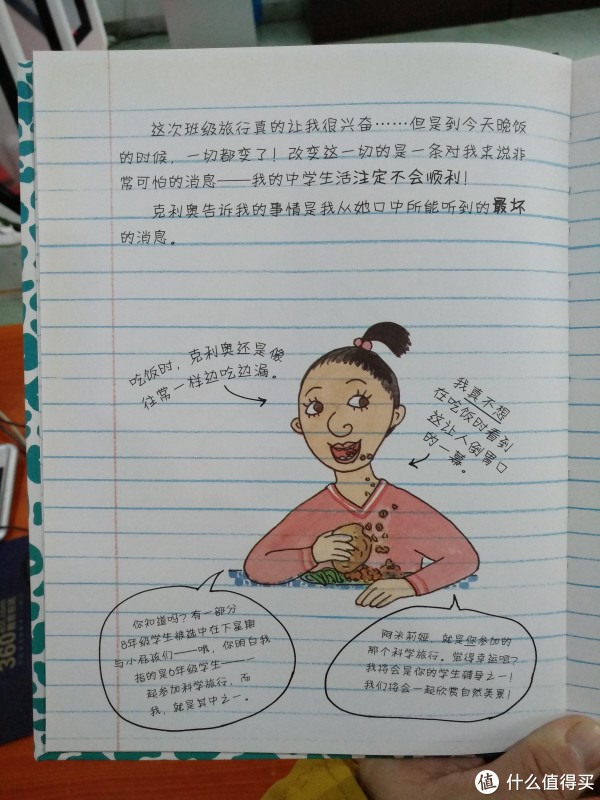 这次班级旅行真的让我很兴奋……但是到今天晚饭
的时候，一切都变了！改变这一切的是一条对我来说非
常可怕的消息——我的中学生活注定不会顺利！
克利奥告诉我的事情是我从她口中所能听到的最坏
的消息。
吃饭时，克利奥还是像
往常一样边吃边漏。
我真不想
在吃饭时看到
这让人倒胃口
的一幕。
你知道吗？有一部分
8年级学生被选中在下星期
与小屁孩们——哦，你明白我
指的是6年级学生——一
起参加科学旅行，而
我，就是其中之一。
阿米莉娅，就是您参加的
那个科学旅行。觉得幸运吧？
我将会是你的学生辅导之一！
我们将会一起欣赏自然美景！
360
值 什么值得买